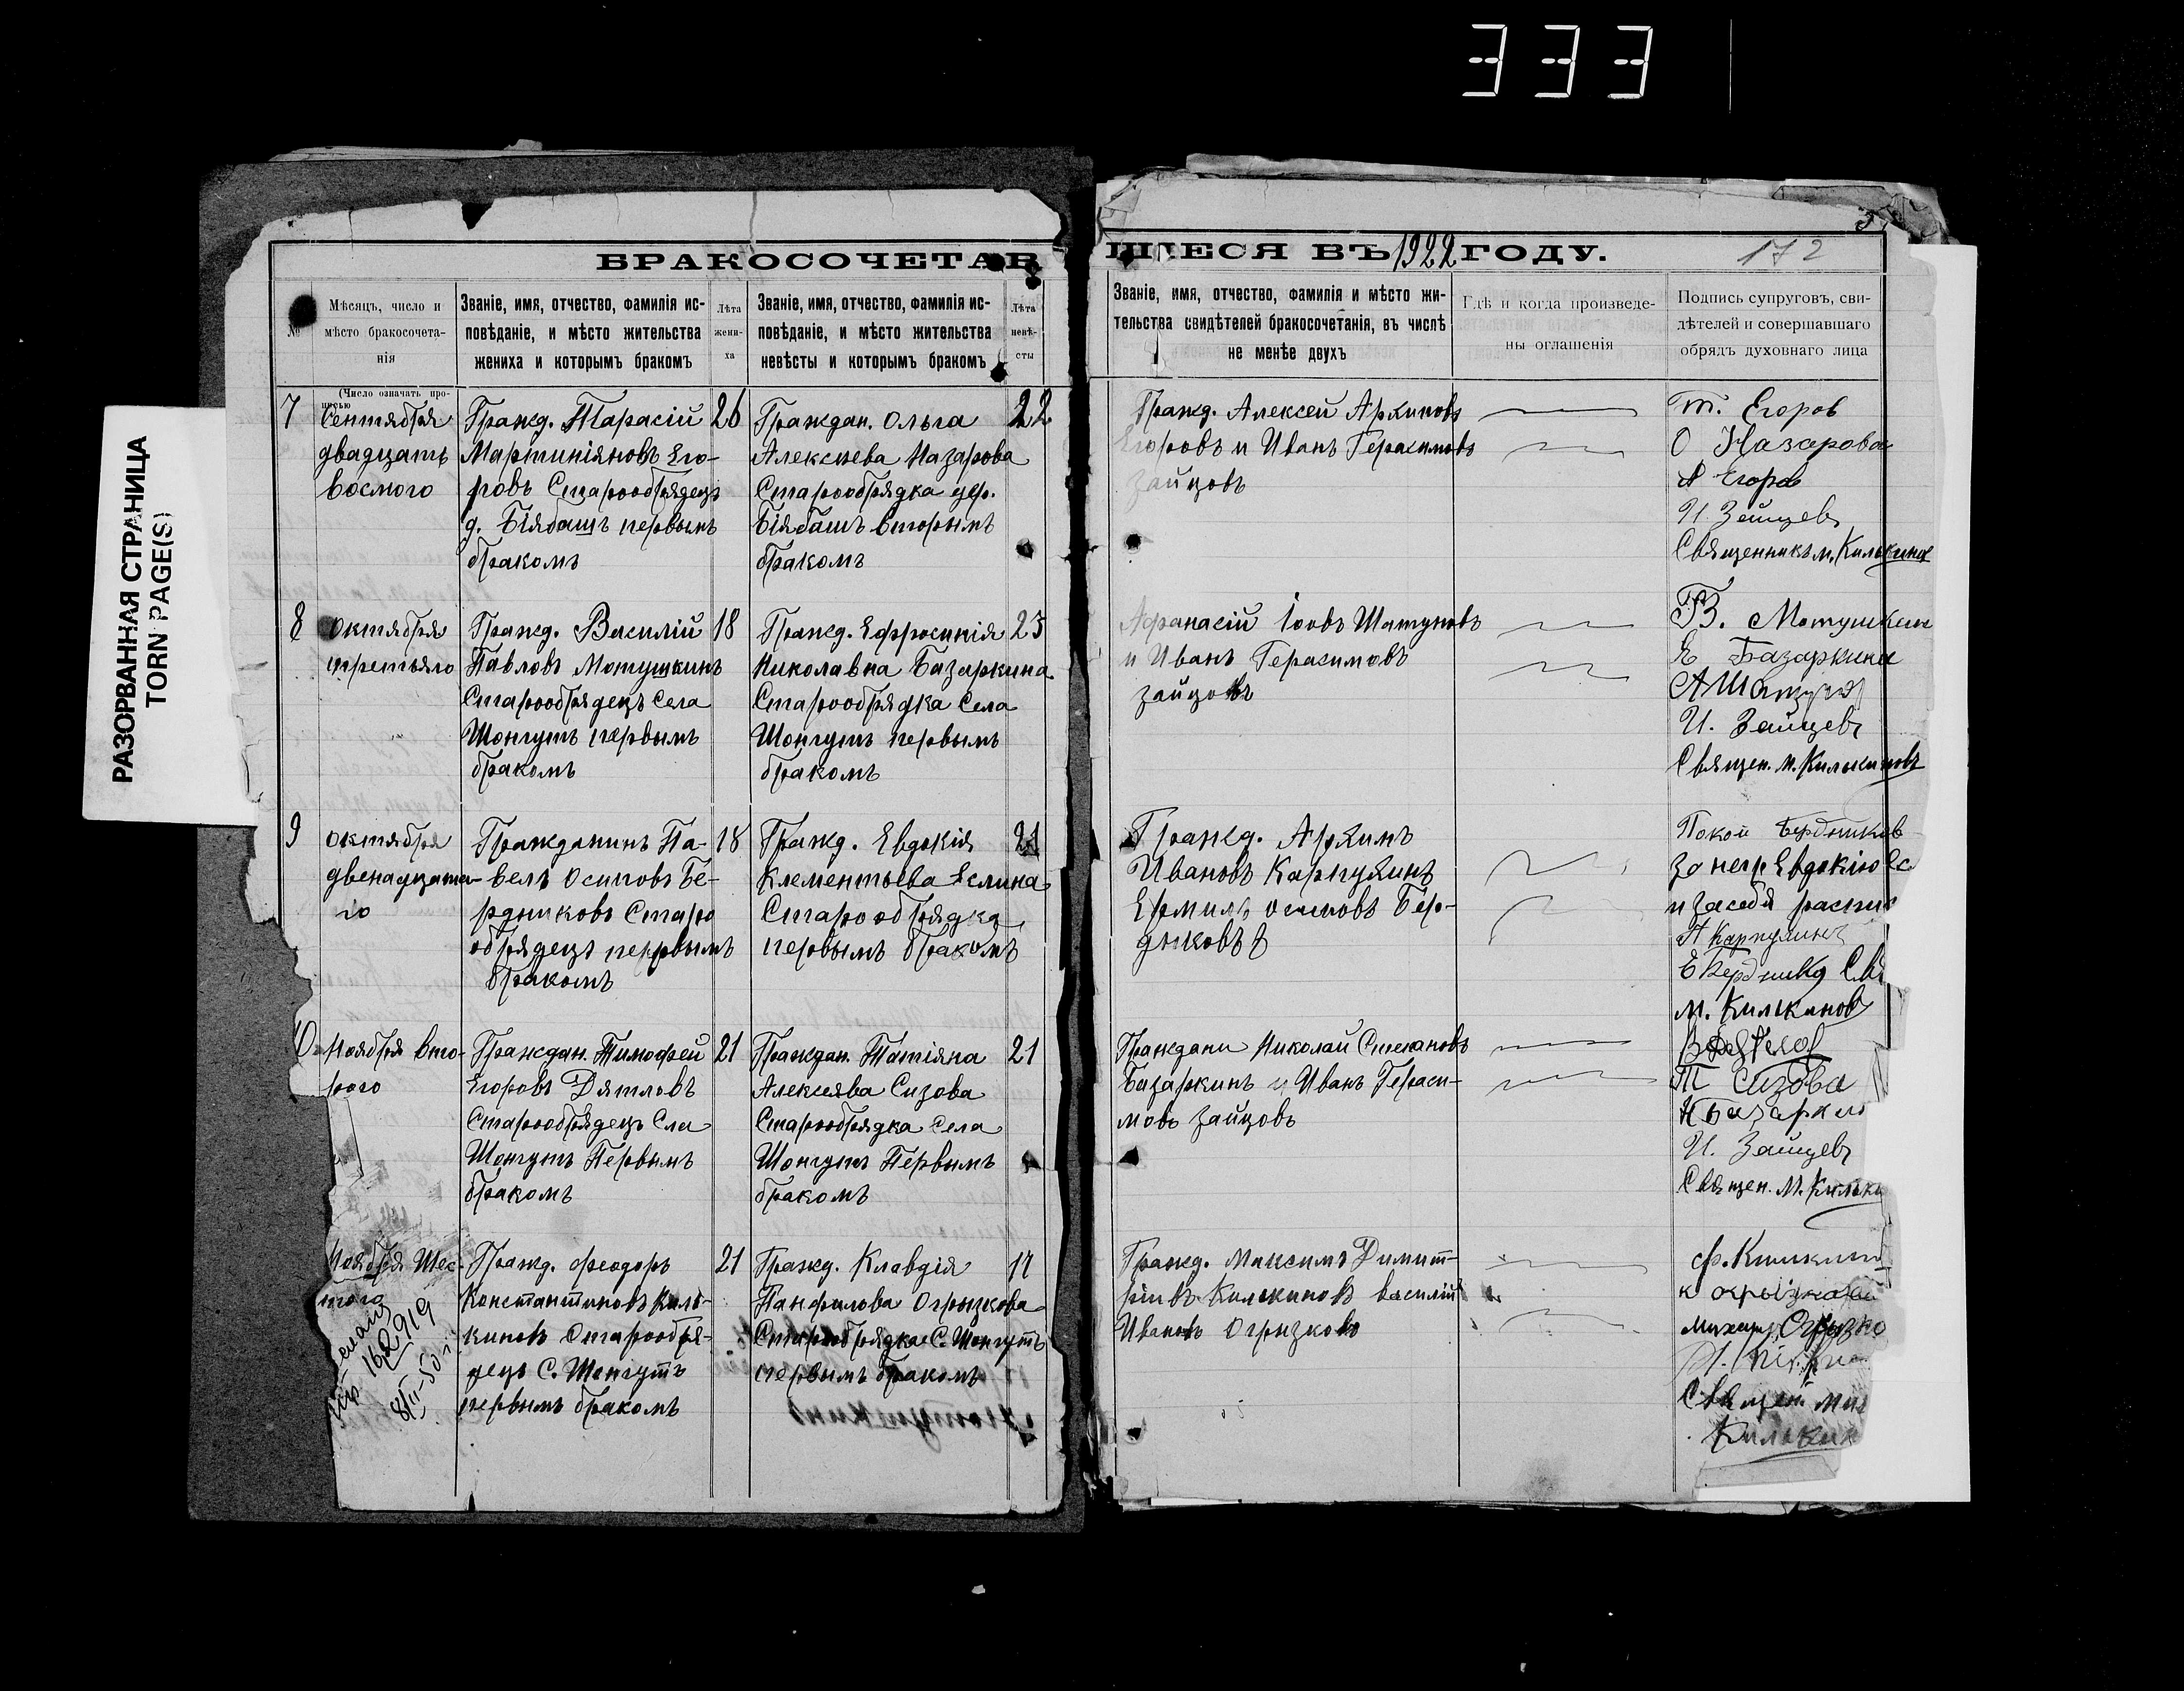 333
РАЗОРВАННАЯ СТРАНИЦА
TORN PAGE(S)
БРАКОСОЧЕТАВ
ШІЕСЯ ВЪ 1922 ГОДУ.
172
№
Мѣсяцъ, число и
мѣсто бракосочета-
нія
Званіе, имя, отчество, фамилія ис-
повѣданіе, и мѣсто жительства
жениха и которымъ бракомъ
Лѣта
жени-
ха
Званіе, имя, отчество, фамилія ис-
повѣданіе, и мѣсто жительства
невѣсты и которымъ бракомъ
Лѣта
невѣ-
сты
Званіе, имя, отчество, фамилія и мѣсто жи-
тельства свидѣтелей бракосочетанія, въ числѣ
не менѣе двухъ
Гдѣ и когда произведе-
ны оглашенія
Подпись супруговъ, сви-
дѣтелей и совершавшаго
обрядъ духовнаго лица
(Число означать про-
писью
7
Сентября
двадцать
восмого
Гражд. Тарасій
Мартиніяновъ Его-
ровъ Старообрядецъ
д. Біябашъ первымъ
бракомъ
26
Граждан. Ольга
Алексѣева Назарова
Старообрядка дер.
Біябашъ вторымъ
бракомъ
22
Гражд. Алексей Архиповъ
Егоровъ и Иванъ Герасимовъ
Зайцовъ
Т. Егоров
О Назарова
А Егоров
И. Зайцевъ
Священникъ М. Килькинов
8
Октября
третьяго
Гражд. Василій
Павловъ Мотушкинъ
Старообрядецъ Села
Шонгутъ первымъ
бракомъ
18
Гражд. Ефросинія
Николавна Базаркина
Старообрядка Села
Шонгутъ первымъ
бракомъ
23
Афанасій Іовъ Шатуновъ
и Иванъ Герасимовъ
зайцовъ
В. Мотушкин
Е Базаркина
И. Зайцевъ
Священ. М. Килькиновъ
9
октября
двенадцата-
го
Гражданинъ Па-
велъ Осиповъ Бе-
рдниковъ Старо
обрядецъ первымъ
бракомъ
18
Гражд. Евдокія
Клементьева Еслина
Старообрядка
первымъ бракомъ
21
Гражд. Архипъ
Ивановъ Карпухинъ
Ермилъ осиповъ Бер-
дниковъ
за негр Евдокию Ес
и засебя распис
М. Килькинов
10
Ноября вто-
рого
Граждан. Тимофей
Егоровъ Дятловъ
Старообрядецъ Сла
Шонгутъ Первымъ
бракомъ
21
Граждан. Татіяна
Алексеява Сизова
Старообрядка Села
Шонгутъ Первымъ
бракомъ
21
Граждани Николай Степановъ
Базаркинъ и Иванъ Гераси-
мовъ Зайцовъ
Т Сизова
Н Базарки
И. Зайцевъ
Священ. М. Кильки
Ноября Шес-
того
Гражд. Феодоръ
Константиновъ Киль-
киновъ Старообря-
децъ С. Шонгутъ
первымъ бракомъ
21
Гражд. Клавдія
Панфилова Огрызкова
Старообрядка С. Шонгутъ
первымъ бракомъ
17
Гражд. Максимъ Димит-
ріивъ Килькиновъ василій
Ивановъ Огрызково
Килькин
162919